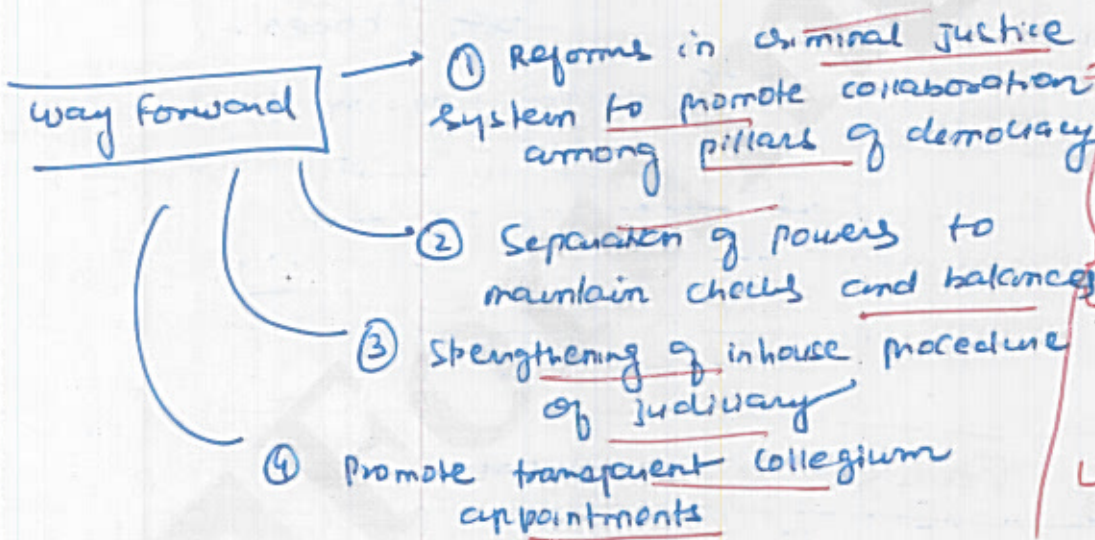 way Forward
① Reforms in criminal justice
system to promote collaboration
among pillars of democracy
② Separation of powers to
maintain checks and balances
③ Strengthening of inhouse procedure
of judiciary
④ Promote transparent collegium
appointments